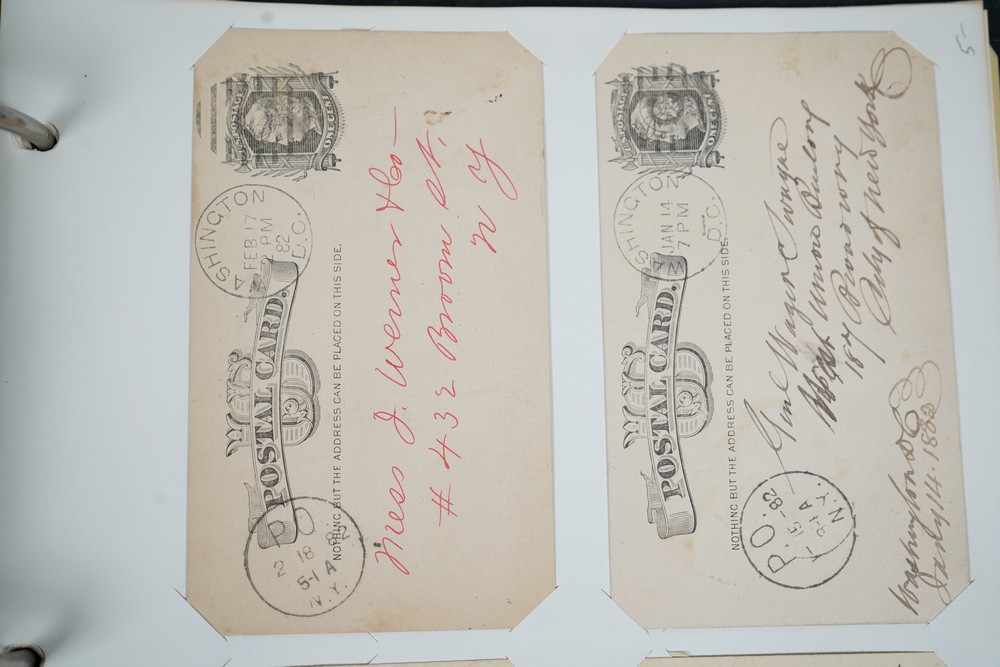 U.S. POSTAGE
ONE CENT
WASHINGTON
FEB 17
2 PM
82
D.C.
U S
POSTAL CARD.
NOTHING BUT THE ADDRESS CAN BE PLACED ON THIS SIDE.
Mess J. Werner & Co
# 432 Broom St.
N Y
P O
2 18 82
5-1 A
N.Y.
U.S. POSTAGE
ONE CENT
WASHINGTON
JAN 14
7 PM
D.C.
U S
POSTAL CARD.
NOTHING BUT THE ADDRESS CAN BE PLACED ON THIS SIDE.
Genl Wager Swayne
West Union
187 Broadway
City of New York
Washington D C
Jany 14. 1882
P.O.
15 82
A
N.Y.
5-